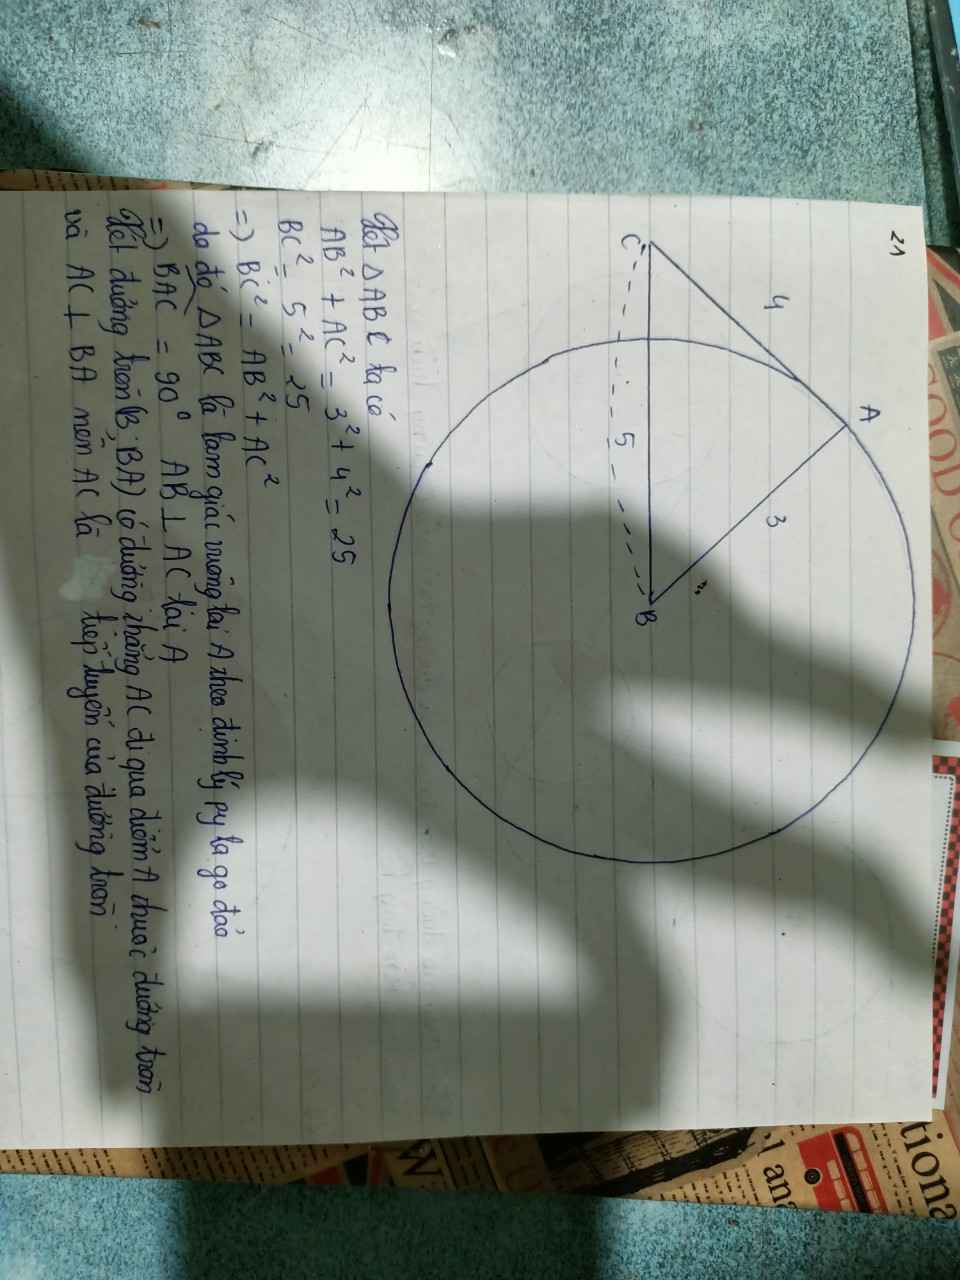 21
C
4
A
3
5
B
Xét △ABC ta có
AB² + AC² = 3² + 4² = 25
BC² = 5² = 25
=) BC² = AB² + AC²
do đó △ABC là tam giác vuông tại A theo định lý py ta go đảo
=) BAC = 90° AB ⊥ AC tại A
Xét đường tròn (B; BA) có đường thẳng AC đi qua điểm A thuộc đường tròn
và AC ⊥ BA nên AC là tiếp tuyến của đường tròn
GOOD
tiona
l ana
W